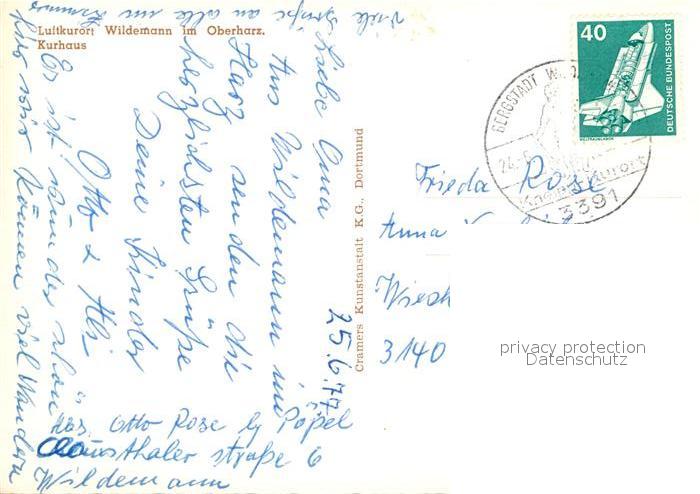 Luftkurort Wildemann im Oberharz.
Kurhaus
Viele Grüße an alle
Liebe Oma
Aus Wildemann im
Harz senden die
herzlichsten Grüße
Deine Kinder
Otto &
Es ist wunder schön
hier wir können viel Wandern
25.6.77
Abs. Otto Rose bei Pöpel
Clausthaler straße 6
Wildemann
Cramers Kunstanstalt K.G., Dortmund
40
DEUTSCHE BUNDESPOST
BERGSTADT
24.6.
3391
Frieda Rose
Anna
3140
privacy protection
Datenschutz